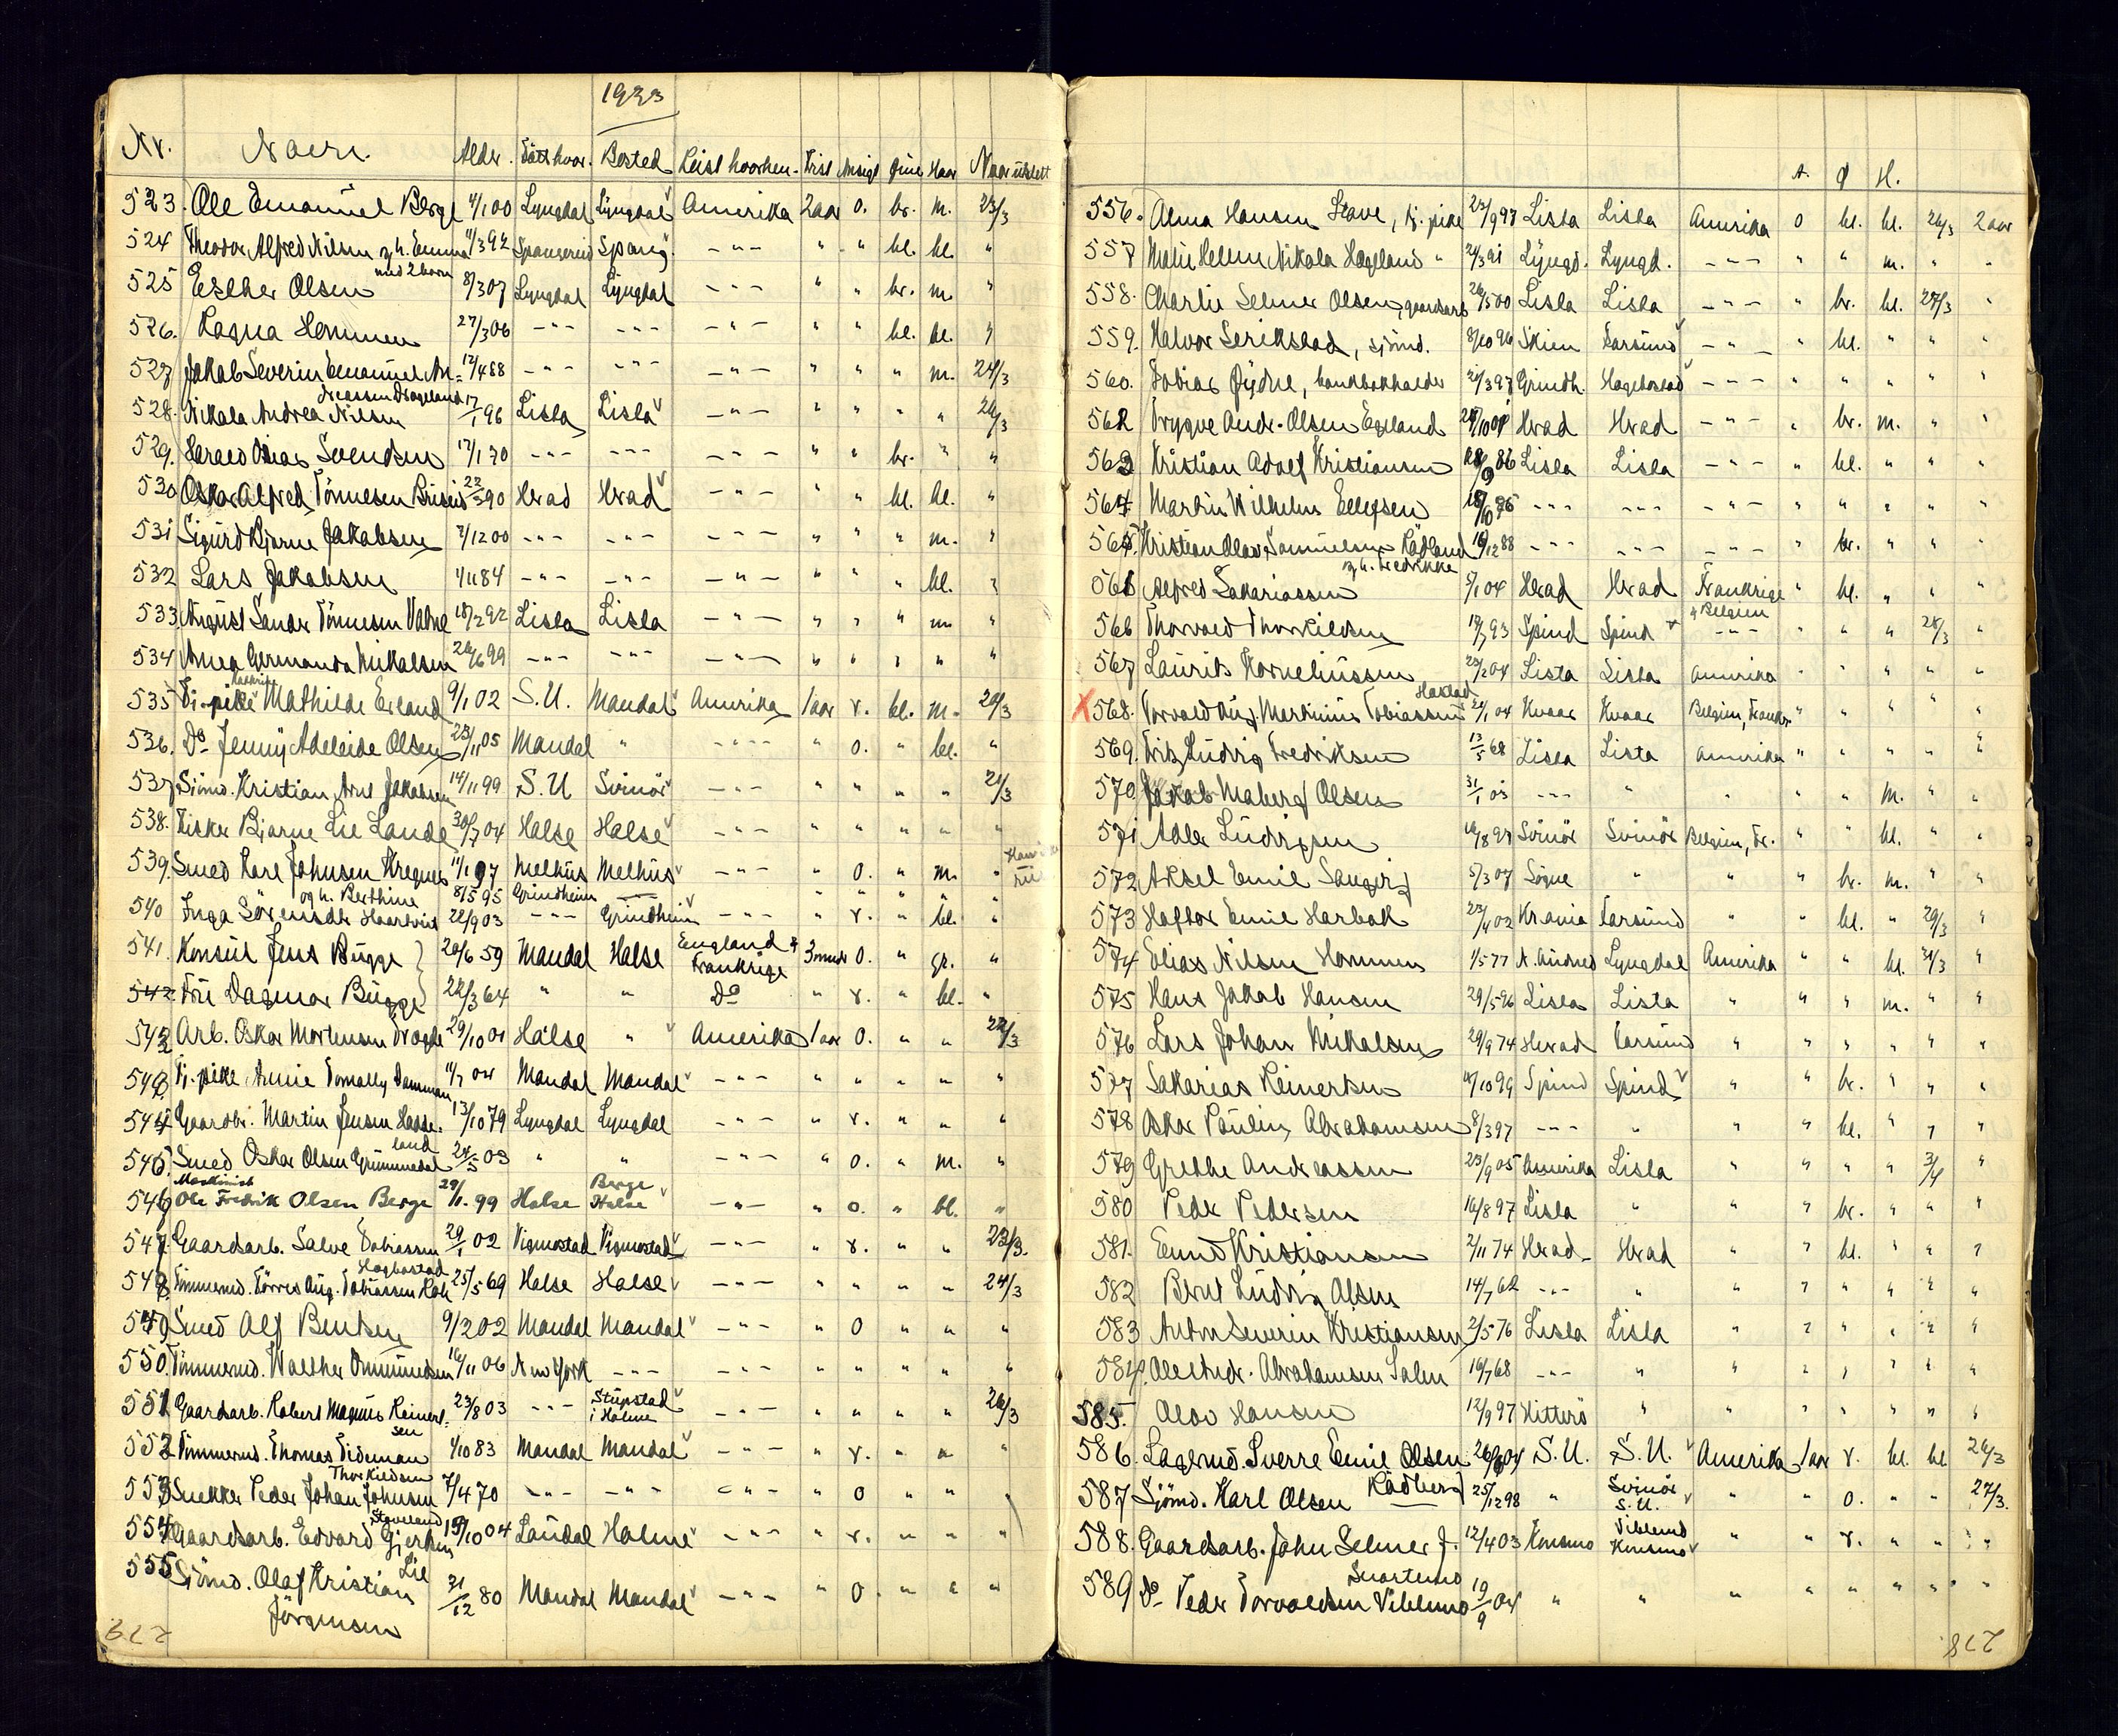 1923
Nr. Navn. Alder. Født hvor. Bosted Reist hvorhen. Frist Ansigt Øine Haar Naar utstedt
523. Ole Emanuel Berge 4/1 00 Lyngdal Lyngdal Amerika 2 aar o. br. m. 23/3
524 Theodor Alfred Nilsen og h. Emma 11/3 92 Spangereid Spang. -"- " " bl. bl. "
med 2 barn
525 Esther Olsen 8/3 07 Lyngdal Lyngdal -"- " " br. m. "
526. Ragna Hommen 27/3 06 -"- -"- -"- " " bl. bl. "
527 Jakob Severin Emanuel An- 12/4 88 -"- -"- -"- " " " m. 24/3
dreassen Drageland
528. Nikala Andrea Nilsen 17/1 96 Lista Lista -"- " " " " 26/3
529. Harald Elias Svendsen 17/1 70 -"- -"- -"- " " br. " "
530 Oskar Alfred Tönnesen Briseid 22/5 90 Herad Herad -"- " " bl. bl. "
531 Sigurd Bjarne Jakobsen 7/12 00 -"- -"- -"- " " " m. "
532 Lars Jakobsen 1/11 84 -"- -"- -"- " " " bl. "
533. August Sander Tönnesen Vatne 18/2 92 Lista Lista -"- " " " m "
534 Anna Germanda Mikalsen 26/6 99 -"- -"- -"- " " " " "
Kathrine
535 Tj.-pike Mathilde Erland 9/1 02 S.U. Mandal Amerika 1 aar r. bl. m. 20/3
536. Do Jenny Adeleide Olsen 23/11 05 Mandal " -"- " o. " bl. "
537 Sjömd. Kristian Arnt Jakobsen 14/11 99 S.U Svinör -"- " " " " 21/3
538. Fisker Bjarne Lie Lande 30/7 04 Halse Halse -"- " " " " "
539. Smed Karl Johnsen Kregnes 11/1 97 Melhus Melhus -"- " o. " m. "
og h. Berthine 8/5 95 Grindheim — " " " " "
540 Inga Sörensdr Haaertveit 22/9 03 -"- Grindheim -"- " r. " bl. "
541. Konsul Jens Bugge 20/6 59 Mandal Halse England & Frankrige 3 mndr o. " gr. "
542 Fru Dagmar Bugge 22/3 64 " " Do " r. " bl. "
542 Arb. Oskar Mortensen Dragde 29/10 01 Halse " Amerika 1 aar o. " " 22/3
543 Tj. pike Annie Tomally Damman 11/7 04 Mandal Mandal -"- " " " " "
544 Gaardbr. Martin Jensen Hasse- 13/10 79 Lyngdal Lyngdal -"- " r. " " "
land
545 Smed Oskar Olsen Grummedal 24/5 03 " " -"- " o. " m. "
Maskinist
546 Ole Fredrik Olsen Berge 29/11. 99 Halse Berge Halse -"- " o. " bl. "
547. Gaardsarb. Salve Tobiassen 29/1 02 Vigmostad Vigmostad -"- " r. " " 23/3.
Hogbostad
548 Tømmermd. Törres Aug. Tobiassen Roh 25/5 69 Halse Halse -"- " " " " 24/3
549 Smed Alf Bentsen 9/2 02 Mandal Mandal -"- " o " " "
550. Tømmermd. Walther Ommundsen 16/11 06 New York -"- -"- " " " " "
551 Gaardsarb. Robert Magnus Reinert- 23/8 03 -"- Stupstad i Holme -"- " " " " 26/3
sen
552 Tømmermd. Thomas Tideman 1/10 83 Mandal Mandal -"- " r. " " "
Thorkildsen
553 Snekker Peder Johan Johnsen 7/4 70 -"- -"- -"- " o " " "
Staveland
554 Gaardsarb. Edvard Gjertsen 19/10 04 Laudal Halme -"- " r. " " "
Lie
555 Sjömd. Olaf Kristian 31/12 80 Mandal Mandal -"- " o. " " "
Jörgensen
279
A. Ø H.
556. Alma Hansen Stave, tj. pike 23/9 97 Lista Lista Amerika o bl. bl. 26/3 2 aar
557 Malie Helene Nikala Hageland " 24/3 91 Lyngd. Lyngd. -"- " " m. " "
558. Charlie Selmer Olsen, gaardsarb 26/5 00 Lista Lista -"- " br. bl. 27/3 "
559. Halvor Serikstad, sjömd. 8/10 96 Skien Farsund -"- " bl. " " "
560. Tobias Öydne, handbokholder 21/3 97 Grindh. Hægebostad -"- " " " " "
561 Trygve Andr. Olsen Egeland 24/10 01 Herad Herad -"- " br. m. " "
562 Kristian Adolf Kristiansen 28/9 86 Lista Lista -"- " bl. " " "
564 Martin Wilhelm Ellefsen 18/10 76 -"- -"- -"- " " " " "
565. Kristian Olav Samuelsen Rådland 16/12 88 -"- -"- -"- " br. " " "
og h. Fredrikke
566 Alfred Sakariassen 5/1 04 Herad Herad Frankrige " bl. " " "
& Belgien
566 Thorvald Thorkildsen 19/7 93 Spind Spind -"- " " " 28/3 "
567 Laurits Korneliussen 23/2 04 Lista Lista Amerika " " " " "
X 568. Torvald Aug. Martinius Tobiassen 20/1 04 Kvaas Kvaas Belgien, Frankr " " " " "
569. Fritz Ludvig Fredriksen 13/5 68 Lista Lista Amerika " " " " "
570. Jakob Maberg Olsen 31/1 03 -"- " " " " m. " "
571 Adler Ludvigsen 16/8 97 Svinör Svinör Belgien, Fr. " " bl. " "
572 Aksel Emil Saugeng 5/3 07 Sögne " " " br. m. " "
573 Haftor Emil Harbak 23/4 02 Krania Farsund " " bl. " 29/3 "
574 Elias Nilsen Hommen 1/5 77 N. Audned Lyngdal Amerika " " bl. 31/3 "
575 Hans Jakob Hansen 29/5 96 Lista Lista " " " m. " "
576 Lars Johan Mikalsen 29/9 74 Herad Farsund " " " " " "
577 Sakarias Reinertsen 10/10 99 Spind Spind " " br. " " "
578 Oskar Paulin Abrahamsen 8/3 97 -"- " " " bl. " " "
579 Grethe Andreassen 23/9 05 Amerika Lista " " " " 3/4 "
580 Peder Pedersen 16/8 97 Lista " " " br. " " "
581. Eund Kristiansen 2/11 74 Herad Herad " " bl. " " "
582 Bernt Ludvig Olsen 14/7 62 -"- " " " " " " "
583 Anton Severin Kristiansen 2/5 76 Lista Lista " " " " " "
584. Ole Andr. Abrahamsen Salen 16/7 68 -"- " " " " " " "
585. Olav Hansen 12/9 97 Hitterö " " " " " " "
586. Lagermd. Sverre Emil Olsen 26/6 04 S.U. S.U. Amerika 1 aar r. bl. bl 26/3
587 Sjömd. Karl Olsen Rådberg 25/12 98 " Svinör S.U. " " o. " " 27/3.
588. Gaardsarb. John Selmer J. 12/4 03 Konsmo Viblemo Konsmo " " r. " " "
Svartemo
589 Do Peder Torvaldsen Viblemo 19/9 04 " " " " " " " "
278